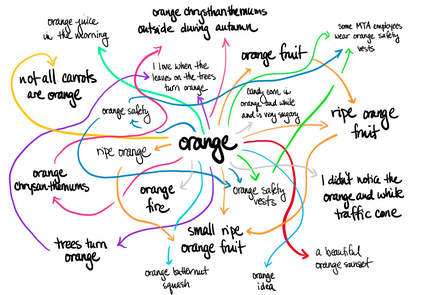 orange juice
in the morning
orange chrysthanthemums
outside during autumn
some MTA employees
wear orange safety
vests
not all carrots
are orange
I love when the
leaves on the trees
turn orange
orange fruit
orange safety
candy corn is
orange and white
and is very sugary
ripe orange
fruit
ripe orange
orange
orange
chrysanthemums
orange
fire
orange safety
vests
I didn't notice the
orange and white
traffic cone
trees turn
orange
small ripe
orange fruit
a beautiful
orange sunset
orange butternut
squash
orange
idea